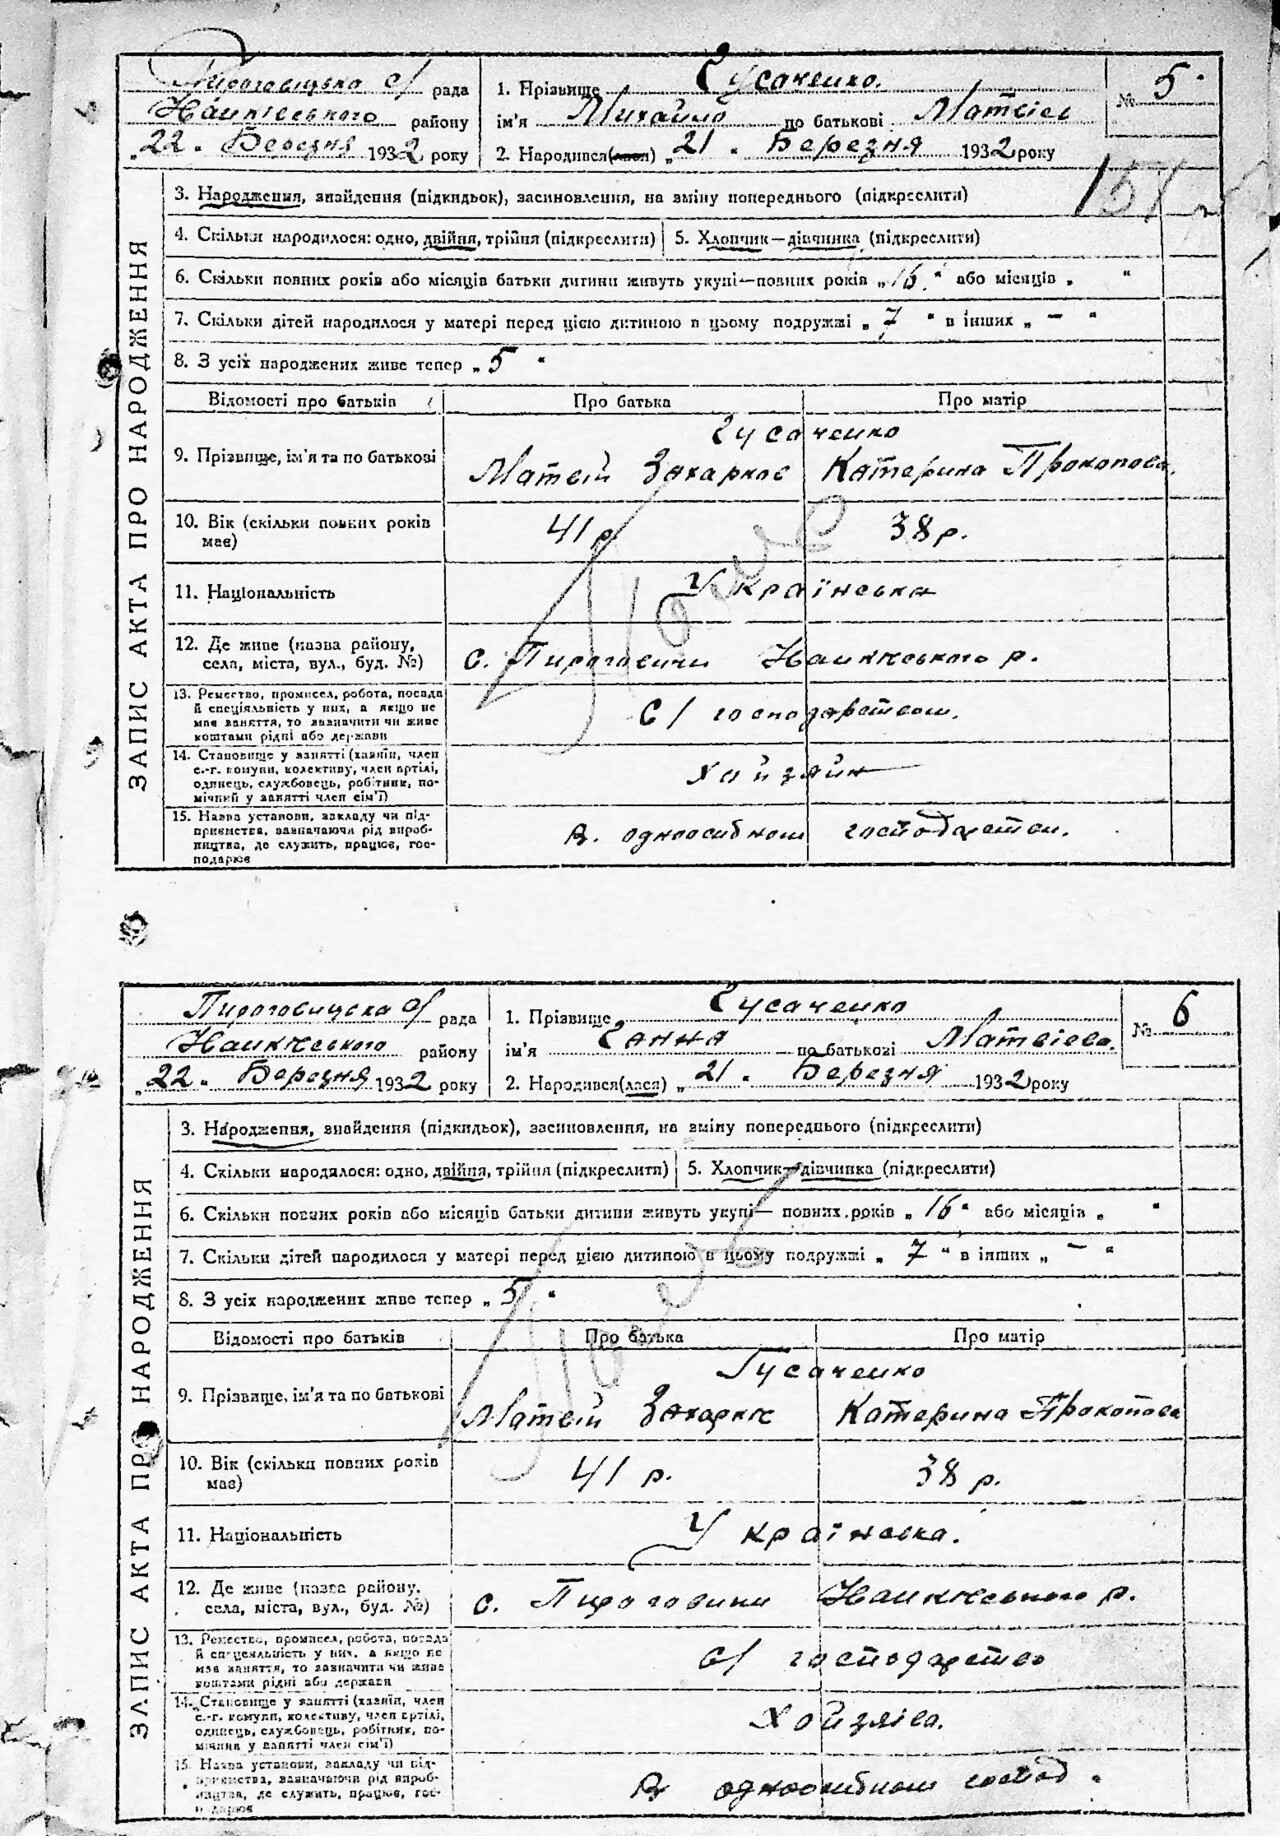 Пироговицька с/ рада
Наикіеського району
„22„ Березня 1932 року
1. Прізвище Гусаченко.
ім'я Михайло по батькові Матвієв
2. Народився(лася) „21„ Березня 1932 року
№ 5
157
3. Народження, знайдення (підкидьок), засиновлення, на зміну попереднього (підкреслити)
4. Скільки народилося: одно, двійня, трійня (підкреслити)
5. Хлопчик—дівчинка (підкреслити)
6. Скільки повних років або місяців батьки дитини живуть укупі—повних років „16„ або місяців „ “
7. Скільки дітей народилося у матері перед цією дитиною в цьому подружжі „7“ в інших „—“
8. З усіх народжених живе тепер „5“
ЗАПИС АКТА ПРО НАРОДЖЕННЯ
Відомості про батьків
Про батька
Про матір
9. Прізвище, ім'я та по батькові
Гусаченко
Матвій Захарков
Катерина Прокопова.
10. Вік (скільки повних років
має)
41 р.
38 р.
11. Національність
Українська
12. Де живе (назва району,
села, міста, вул., буд. №)
с. Пироговичи р.
13. Ремество, промисел, робота, посада
й спеціяльність у них, а якщо не
має заняття, то зазначити чи живе
коштами рідні або держави
С/ господарством.
14. Становище у занятті (хазяїн, член
с.-г. комуни, колективу, член артілі,
одинець, службовець, робітник, по-
мічний у занятті член сім'ї)
Хойзяин
15. Назва установи, закладу чи під-
приємства, зазначаючи рід вироб-
ництва, де служить, працює, гос-
подарює
В. одноосибном господарстви.
Пироговицька с/ рада
району
„22„ Березня 1932 року
1. Прізвище Гусаченко
ім'я Ганна по батькові Матвієва.
2. Народився(лася) „21„ Березня 1932 року
№ 6
3. Народження, знайдення (підкидьок), засиновлення, на зміну попереднього (підкреслити)
4. Скільки народилося: одно, двійня, трійня (підкреслити)
5. Хлопчик—дівчинка (підкреслити)
6. Скільки повних років або місяців батьки дитини живуть укупі— повних років „16“ або місяців „ “
7. Скільки дітей народилося у матері перед цією дитиною в цьому подружжі „7“ в інших „—“
8. З усіх народжених живе тепер „5“
ЗАПИС АКТА ПРО НАРОДЖЕННЯ
Відомості про батьків
Про батька
Про матір
9. Прізвище, ім'я та по батькові
Гусаченко
Матвій
Катерина Прокопова
10. Вік (скільки повних років
має)
41 р.
38 р.
11. Національність
Українська.
12. Де живе (назва району,
села, міста, вул., буд. №)
с. Пироговичи р.
13. Ремество, промисел, робота, посада
й спеціяльність у них, а якщо не
має заняття, то зазначити чи живе
коштами рідні або держави
С/ господарство
14. Становище у занятті (хазяїн, член
с.-г. комуни, колективу, член артілі,
одинець, службовець, робітник, по-
мічний у занятті член сім'ї)
15. Назва установи, закладу чи під-
приємства, зазначаючи рід вироб-
ництва, де служить, працює, гос-
подарює
В одноосибном господ.